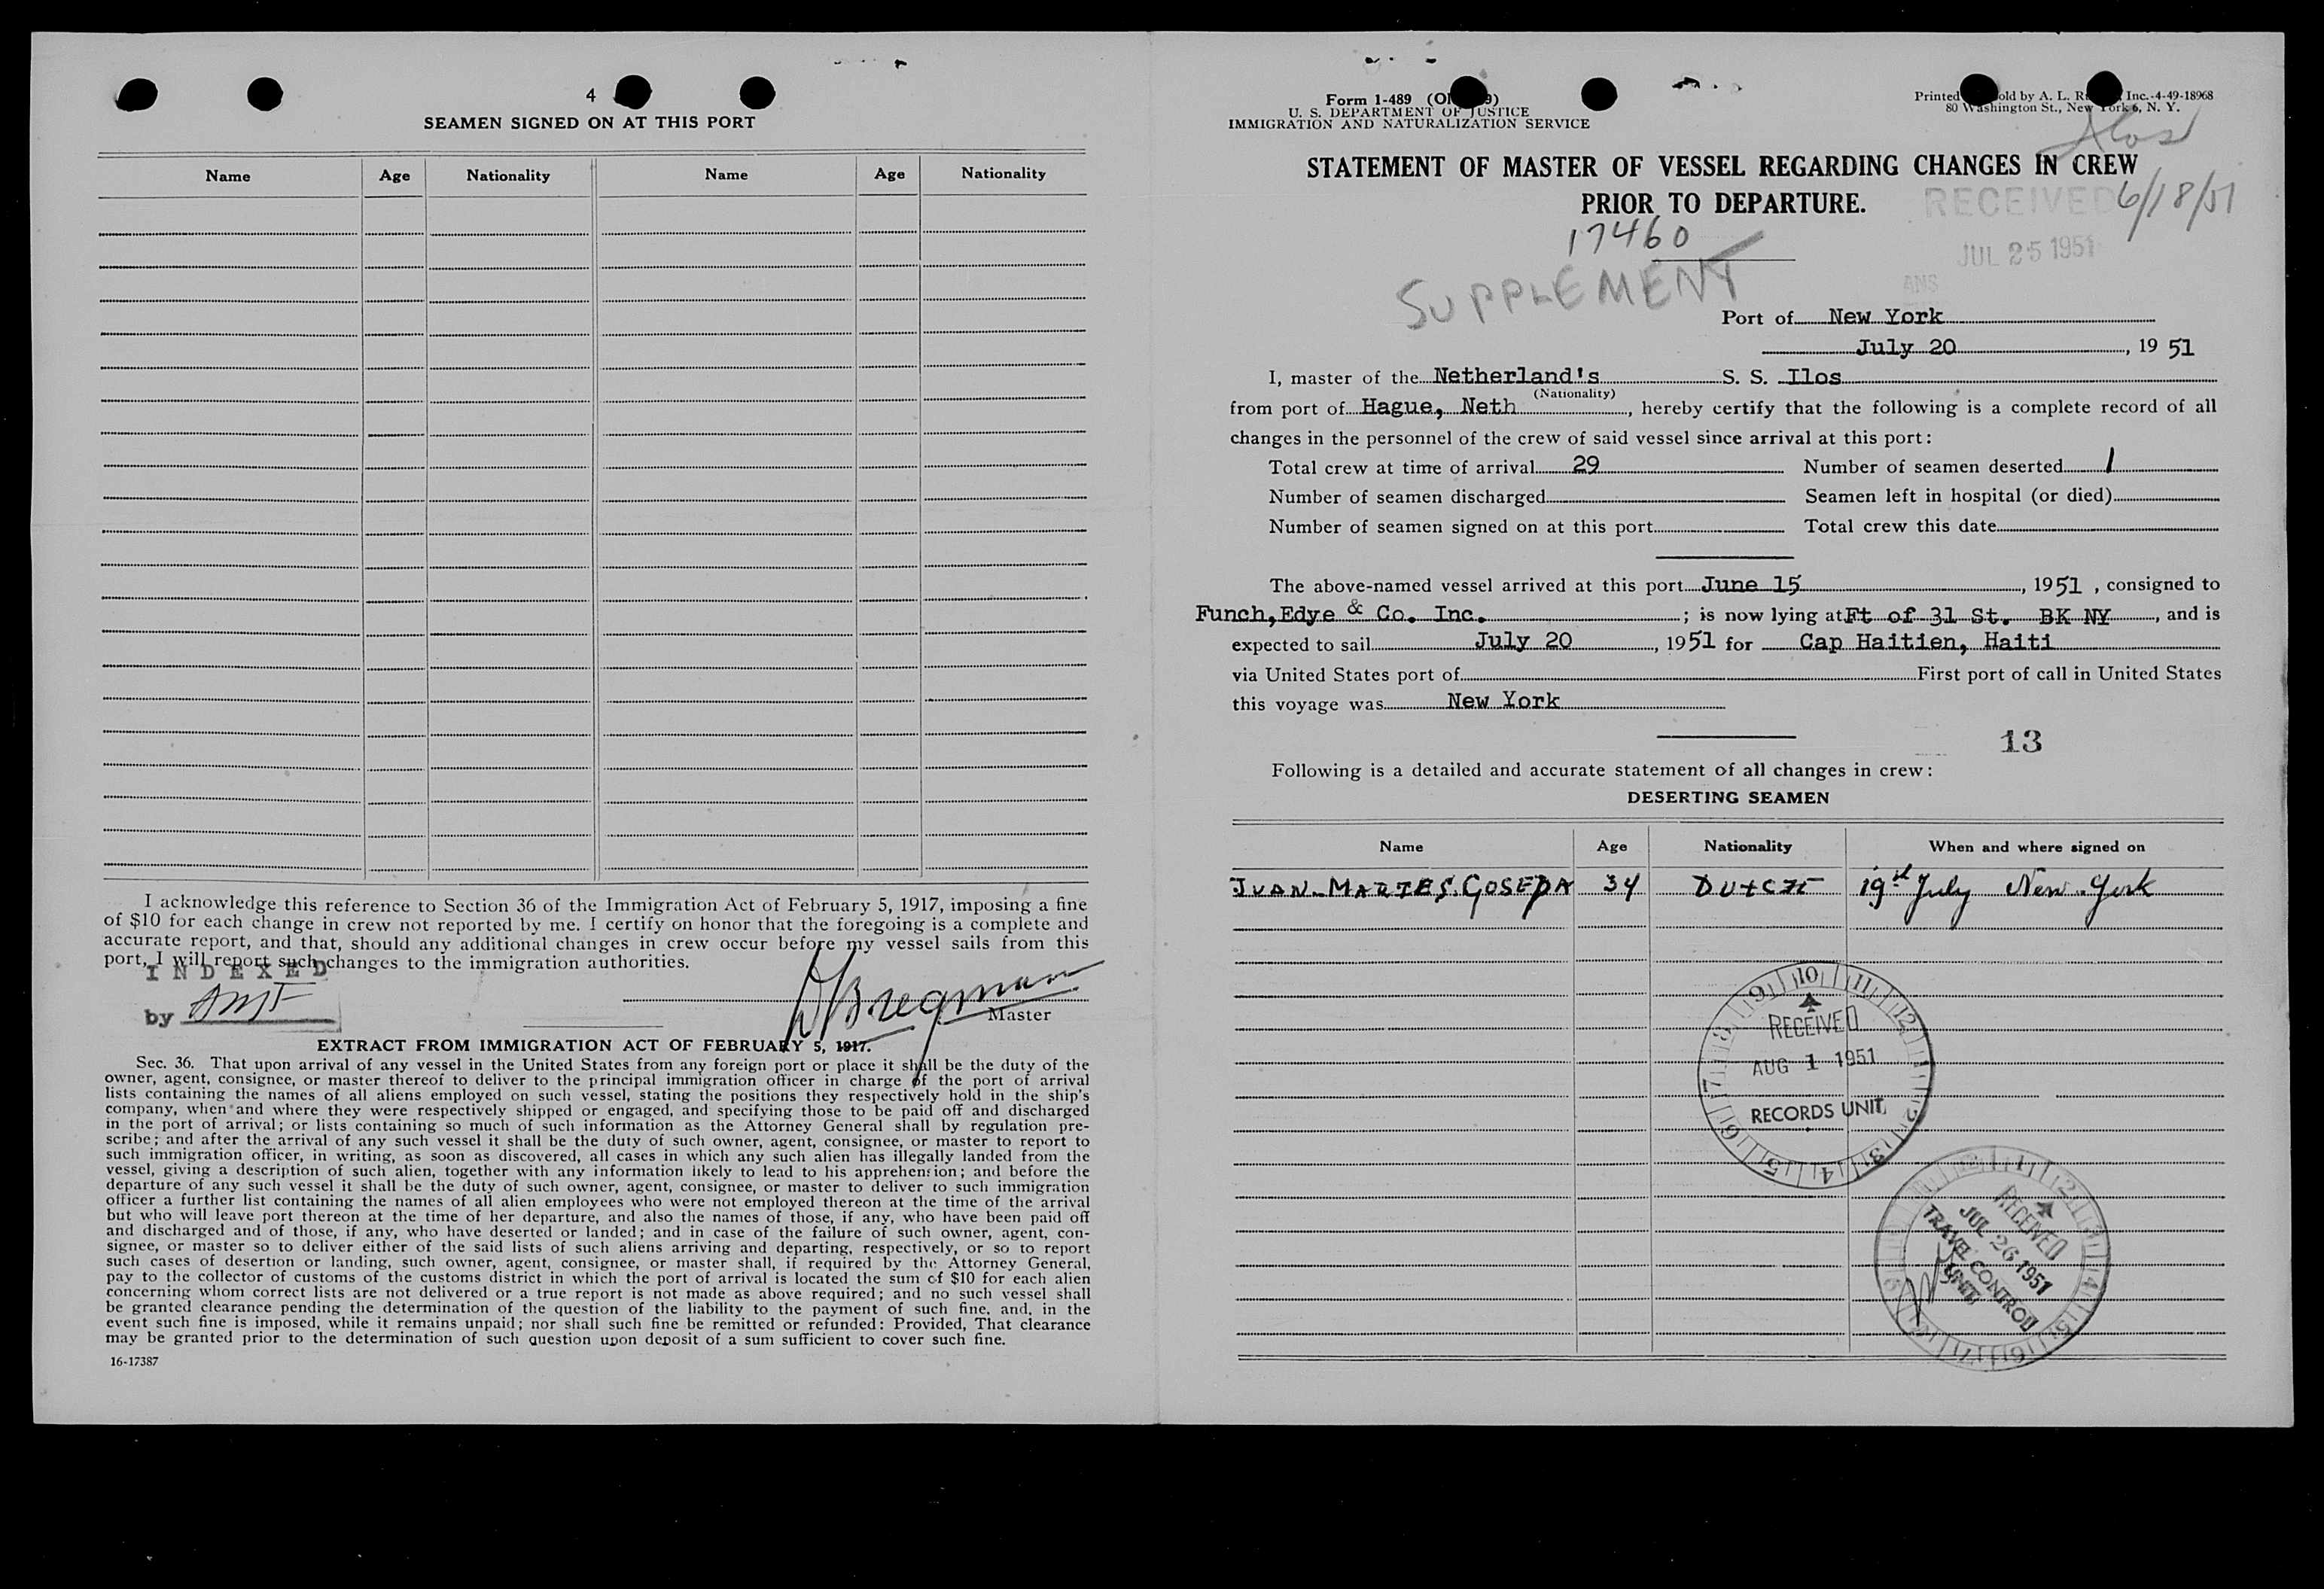 4
SEAMEN SIGNED ON AT THIS PORT
Name Age Nationality Name Age Nationality
I acknowledge this reference to Section 36 of the Immigration Act of February 5, 1917, imposing a fine
of $10 for each change in crew not reported by me. I certify on honor that the foregoing is a complete and
accurate report, and that, should any additional changes in crew occur before my vessel sails from this
port, I will report such changes to the immigration authorities.
INDEXED
by AMF
DBregman
Master
EXTRACT FROM IMMIGRATION ACT OF FEBRUARY 5, 1917.
Sec. 36. That upon arrival of any vessel in the United States from any foreign port or place it shall be the duty of the
owner, agent, consignee, or master thereof to deliver to the principal immigration officer in charge of the port of arrival
lists containing the names of all aliens employed on such vessel, stating the positions they respectively hold in the ship's
company, when and where they were respectively shipped or engaged, and specifying those to be paid off and discharged
in the port of arrival; or lists containing so much of such information as the Attorney General shall by regulation pre-
scribe; and after the arrival of any such vessel it shall be the duty of such owner, agent, consignee, or master to report to
such immigration officer, in writing, as soon as discovered, all cases in which any such alien has illegally landed from the
vessel, giving a description of such alien, together with any information likely to lead to his apprehension; and before the
departure of any such vessel it shall be the duty of such owner, agent, consignee, or master to deliver to such immigration
officer a further list containing the names of all alien employees who were not employed thereon at the time of the arrival
but who will leave port thereon at the time of her departure, and also the names of those, if any, who have been paid off
and discharged and of those, if any, who have deserted or landed; and in case of the failure of such owner, agent, con-
signee, or master so to deliver either of the said lists of such aliens arriving and departing, respectively, or so to report
such cases of desertion or landing, such owner, agent, consignee, or master shall, if required by the Attorney General,
pay to the collector of customs of the customs district in which the port of arrival is located the sum of $10 for each alien
concerning whom correct lists are not delivered or a true report is not made as above required; and no such vessel shall
be granted clearance pending the determination of the question of the liability to the payment of such fine, and, in the
event such fine is imposed, while it remains unpaid; nor shall such fine be remitted or refunded: Provided, That clearance
may be granted prior to the determination of such question upon deposit of a sum sufficient to cover such fine.
16-17387
Form 1-489
U. S. DEPARTMENT OF JUSTICE
IMMIGRATION AND NATURALIZATION SERVICE
Printed old by A. L. R Inc.-4-49-18968
80 Washington St., New York 6, N. Y.
Ilos
STATEMENT OF MASTER OF VESSEL REGARDING CHANGES IN CREW
PRIOR TO DEPARTURE.
RECEIVED 6/18/51
17460
JUL 25 1951
ANS
SUPPLEMENT
Port of New York
July 20, 19 51
I, master of the Netherland's S. S. Ilos
(Nationality)
from port of Hague, Neth, hereby certify that the following is a complete record of all
changes in the personnel of the crew of said vessel since arrival at this port:
Total crew at time of arrival 29 Number of seamen deserted 1
Number of seamen discharged Seamen left in hospital (or died)
Number of seamen signed on at this port Total crew this date
The above-named vessel arrived at this port June 15, 1951, consigned to
Funch, Edye & Co. Inc.; is now lying at Ft of 31 St. BK NY, and is
expected to sail July 20, 1951 for Cap Haitien, Haiti
via United States port of First port of call in United States
this voyage was New York
13
Following is a detailed and accurate statement of all changes in crew:
DESERTING SEAMEN
Name Age Nationality When and where signed on
JUAN MARTES GOSEPA 34 DUTCH 19th July New York
9 10 11 12 1 2 3 4 5 6 7 8
RECEIVED
AUG 1 1951
RECORDS UNIT
RECEIVED
JUL 26 1951
TRAVEL CONTROL
UNIT